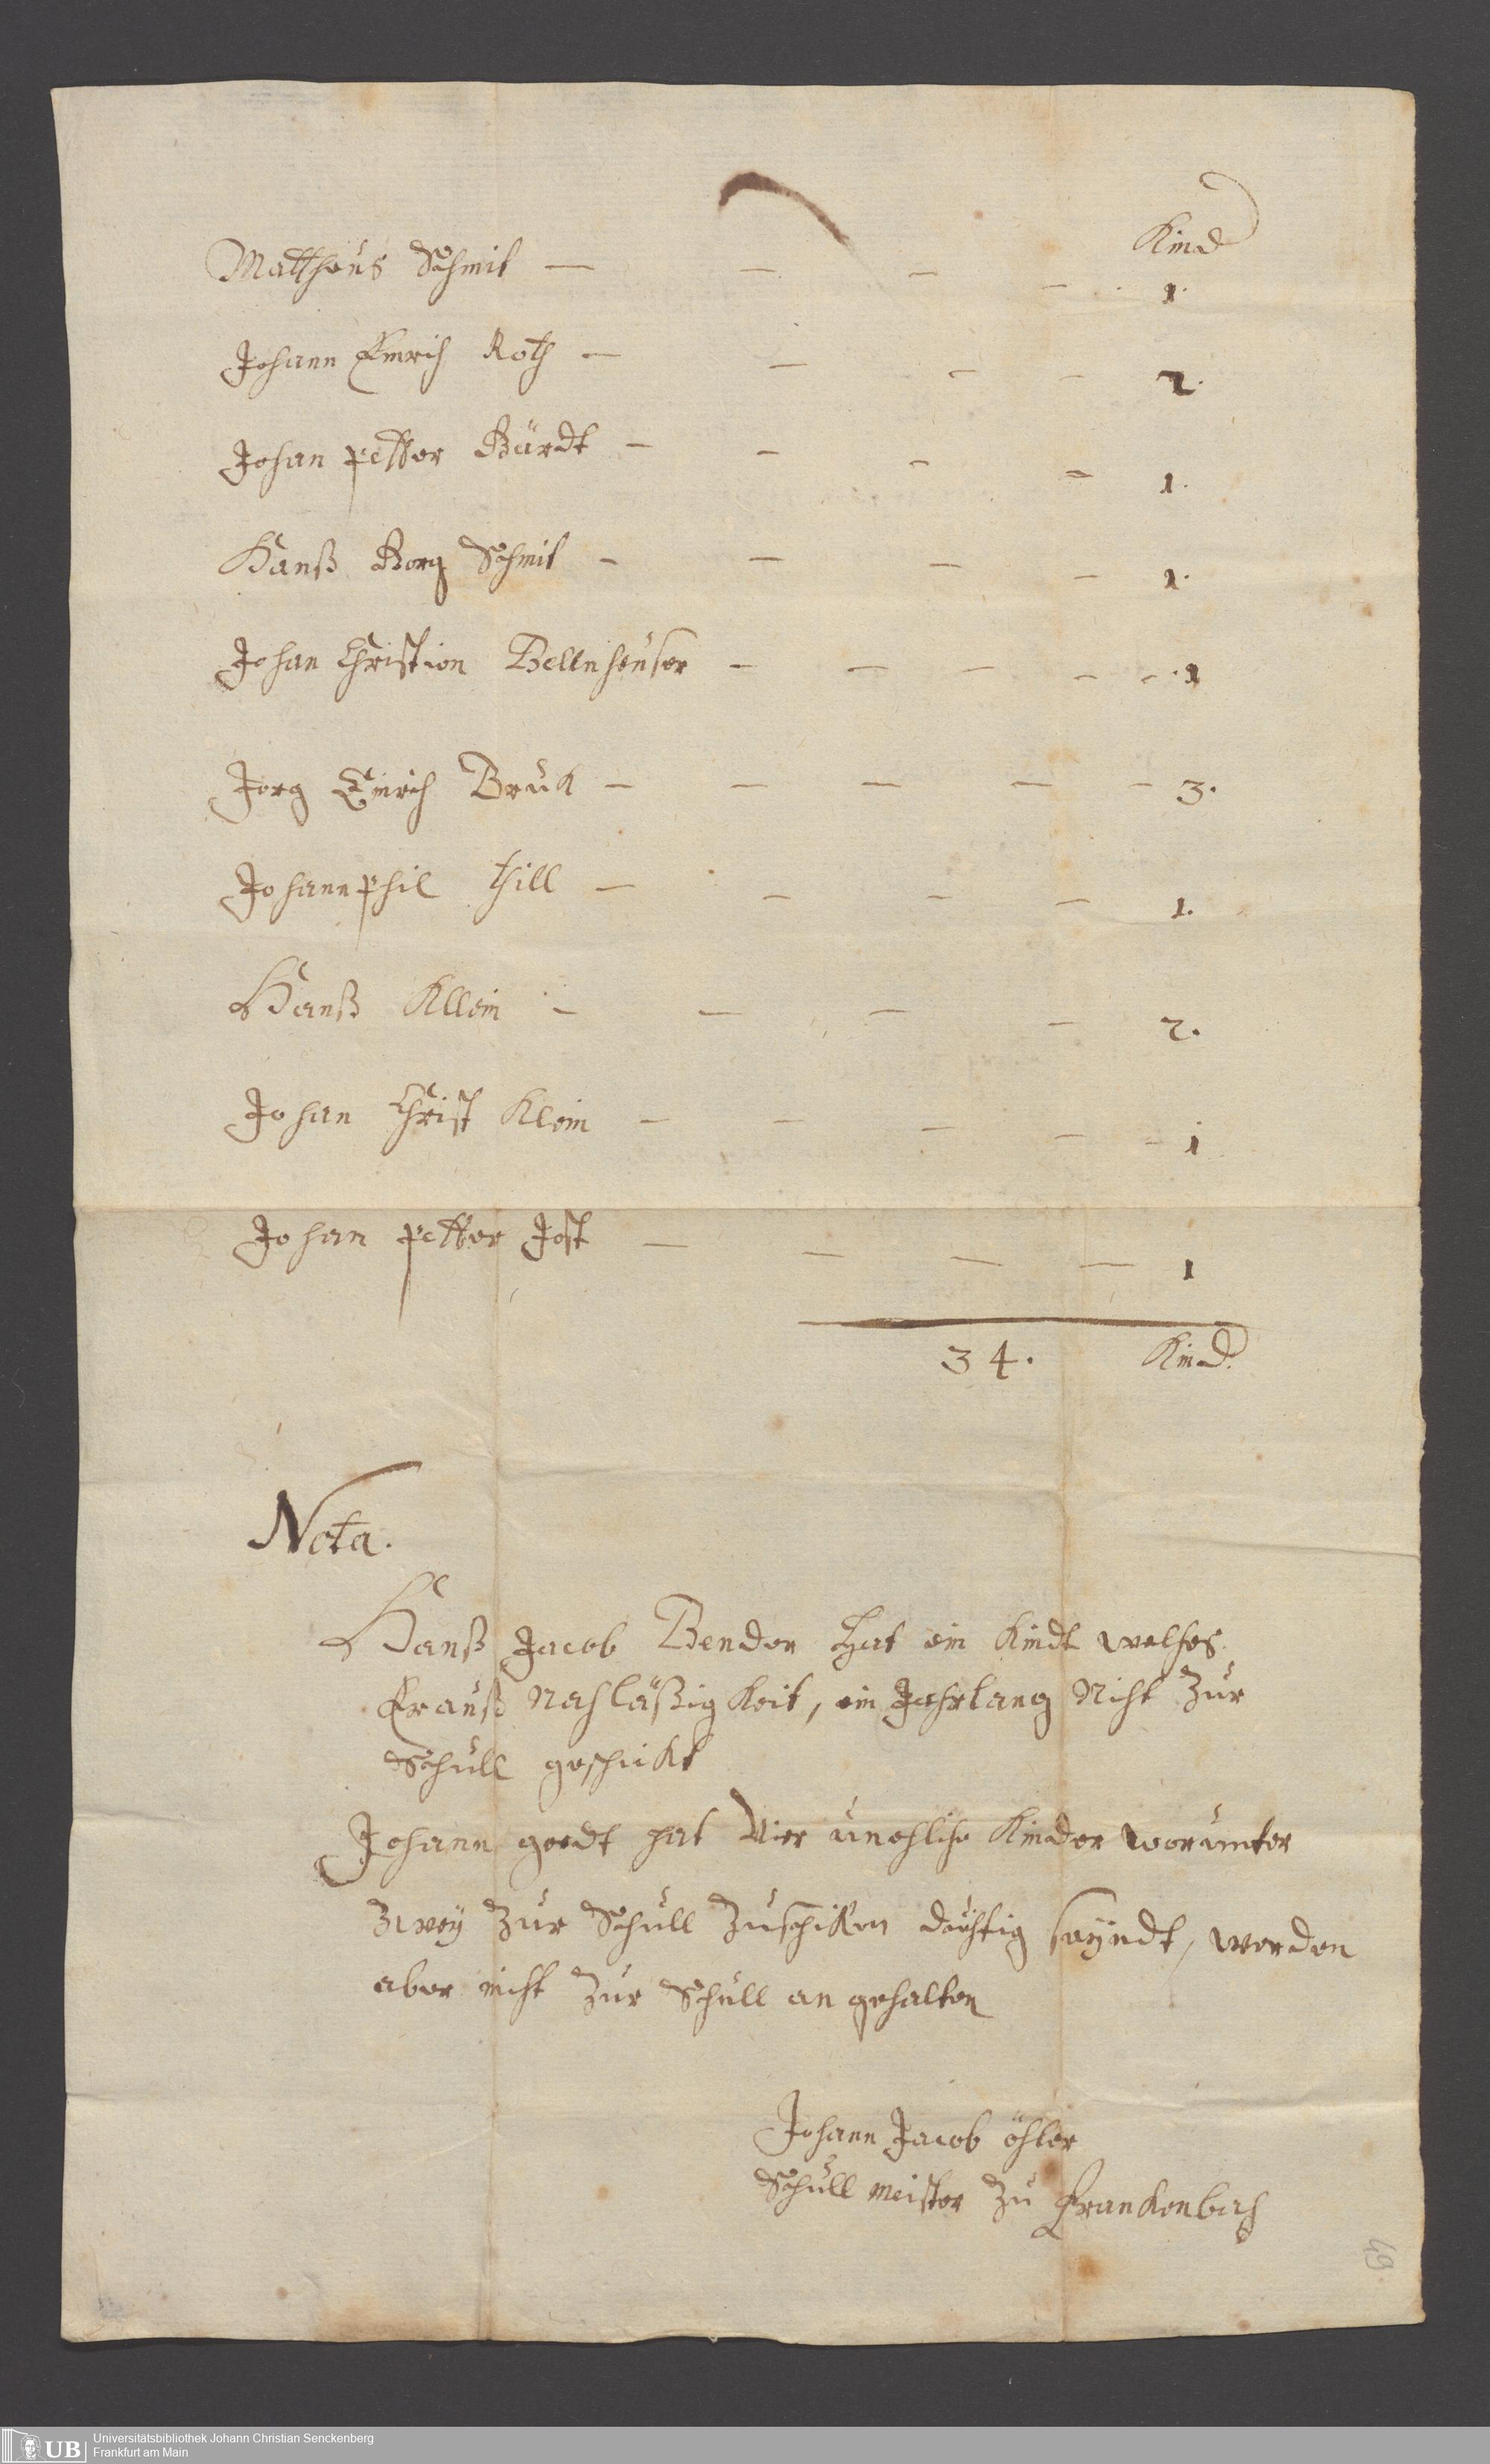 Kind
Mattheus Schmit — — — — 1.
Johann Emrich Roth — — — — 2.
Johan petter Bärdt — — — — 1.
Hanß Borg Schmit — — — — 1.
Johan Christion Bellnheuser — — — — — 1
Jorg Emrich Bruk — — — — — 3.
Johann phil till — — — — 1.
Hanß Kllein — — — — 2.
Johan Christ Klein — — — — — 1
Johan petter Jost — — — — 1
34. Kind.
Nota.
Hanß Jacob Bender Hat ein Kindt welches
Erauß Nachläßigkeit, ein Jahrlang Nicht Zur
Schull geschickt
Johann geedt hat Vier unehliche Kinder worunter
Zwey Zur Schull Zuschiken düchtig seyndt, werden
aber nicht Zur Schull an gehalten
Johann Jacob öhler
Schull meister Zu Frankenbach
49
UB
Universitätsbibliothek Johann Christian Senckenberg
Frankfurt am Main